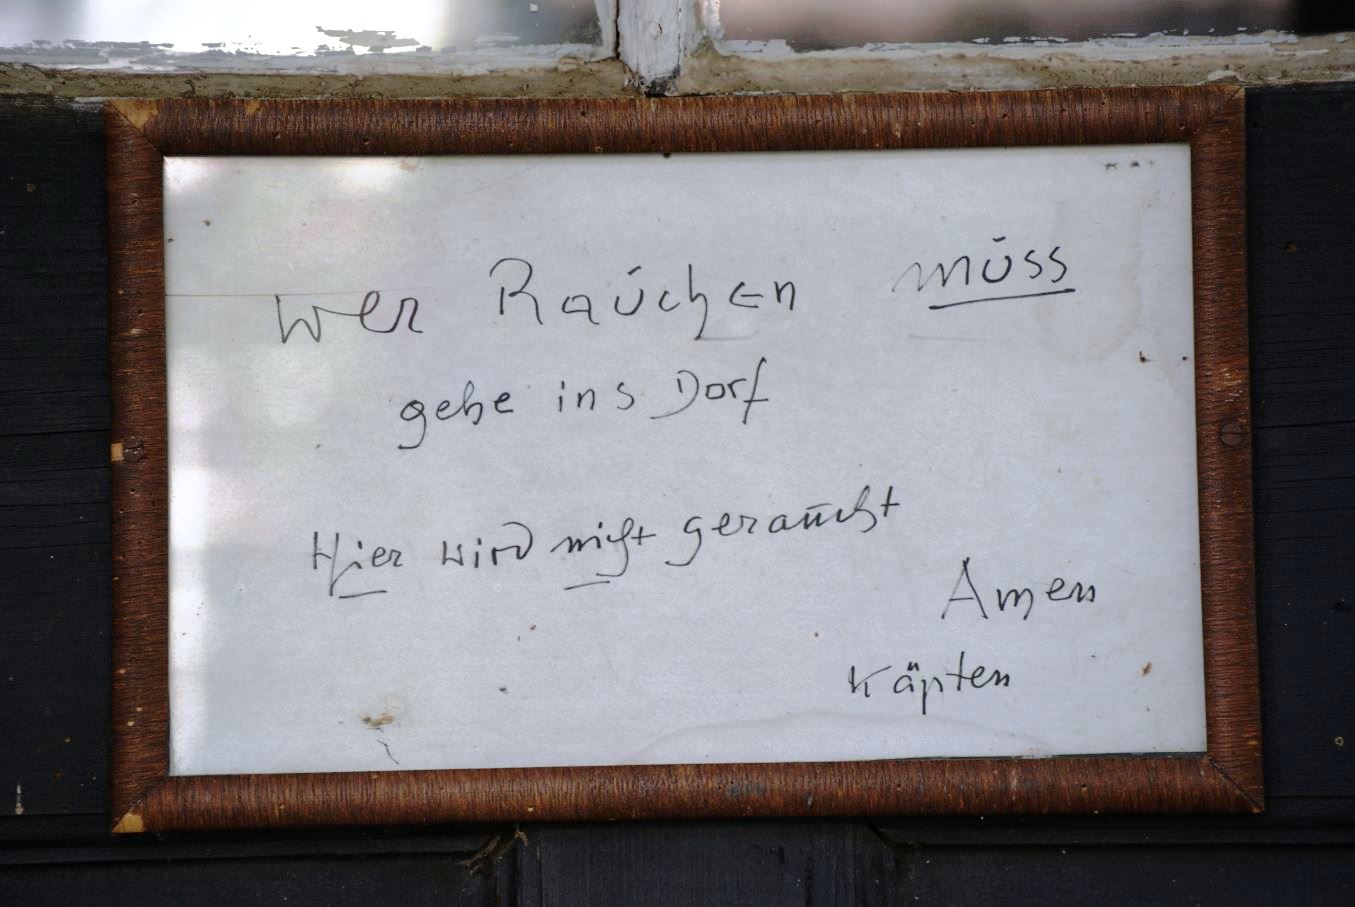 Wer Rauchen muss
gehe ins Dorf
Hier wird nicht geraucht
Amen
Käpten